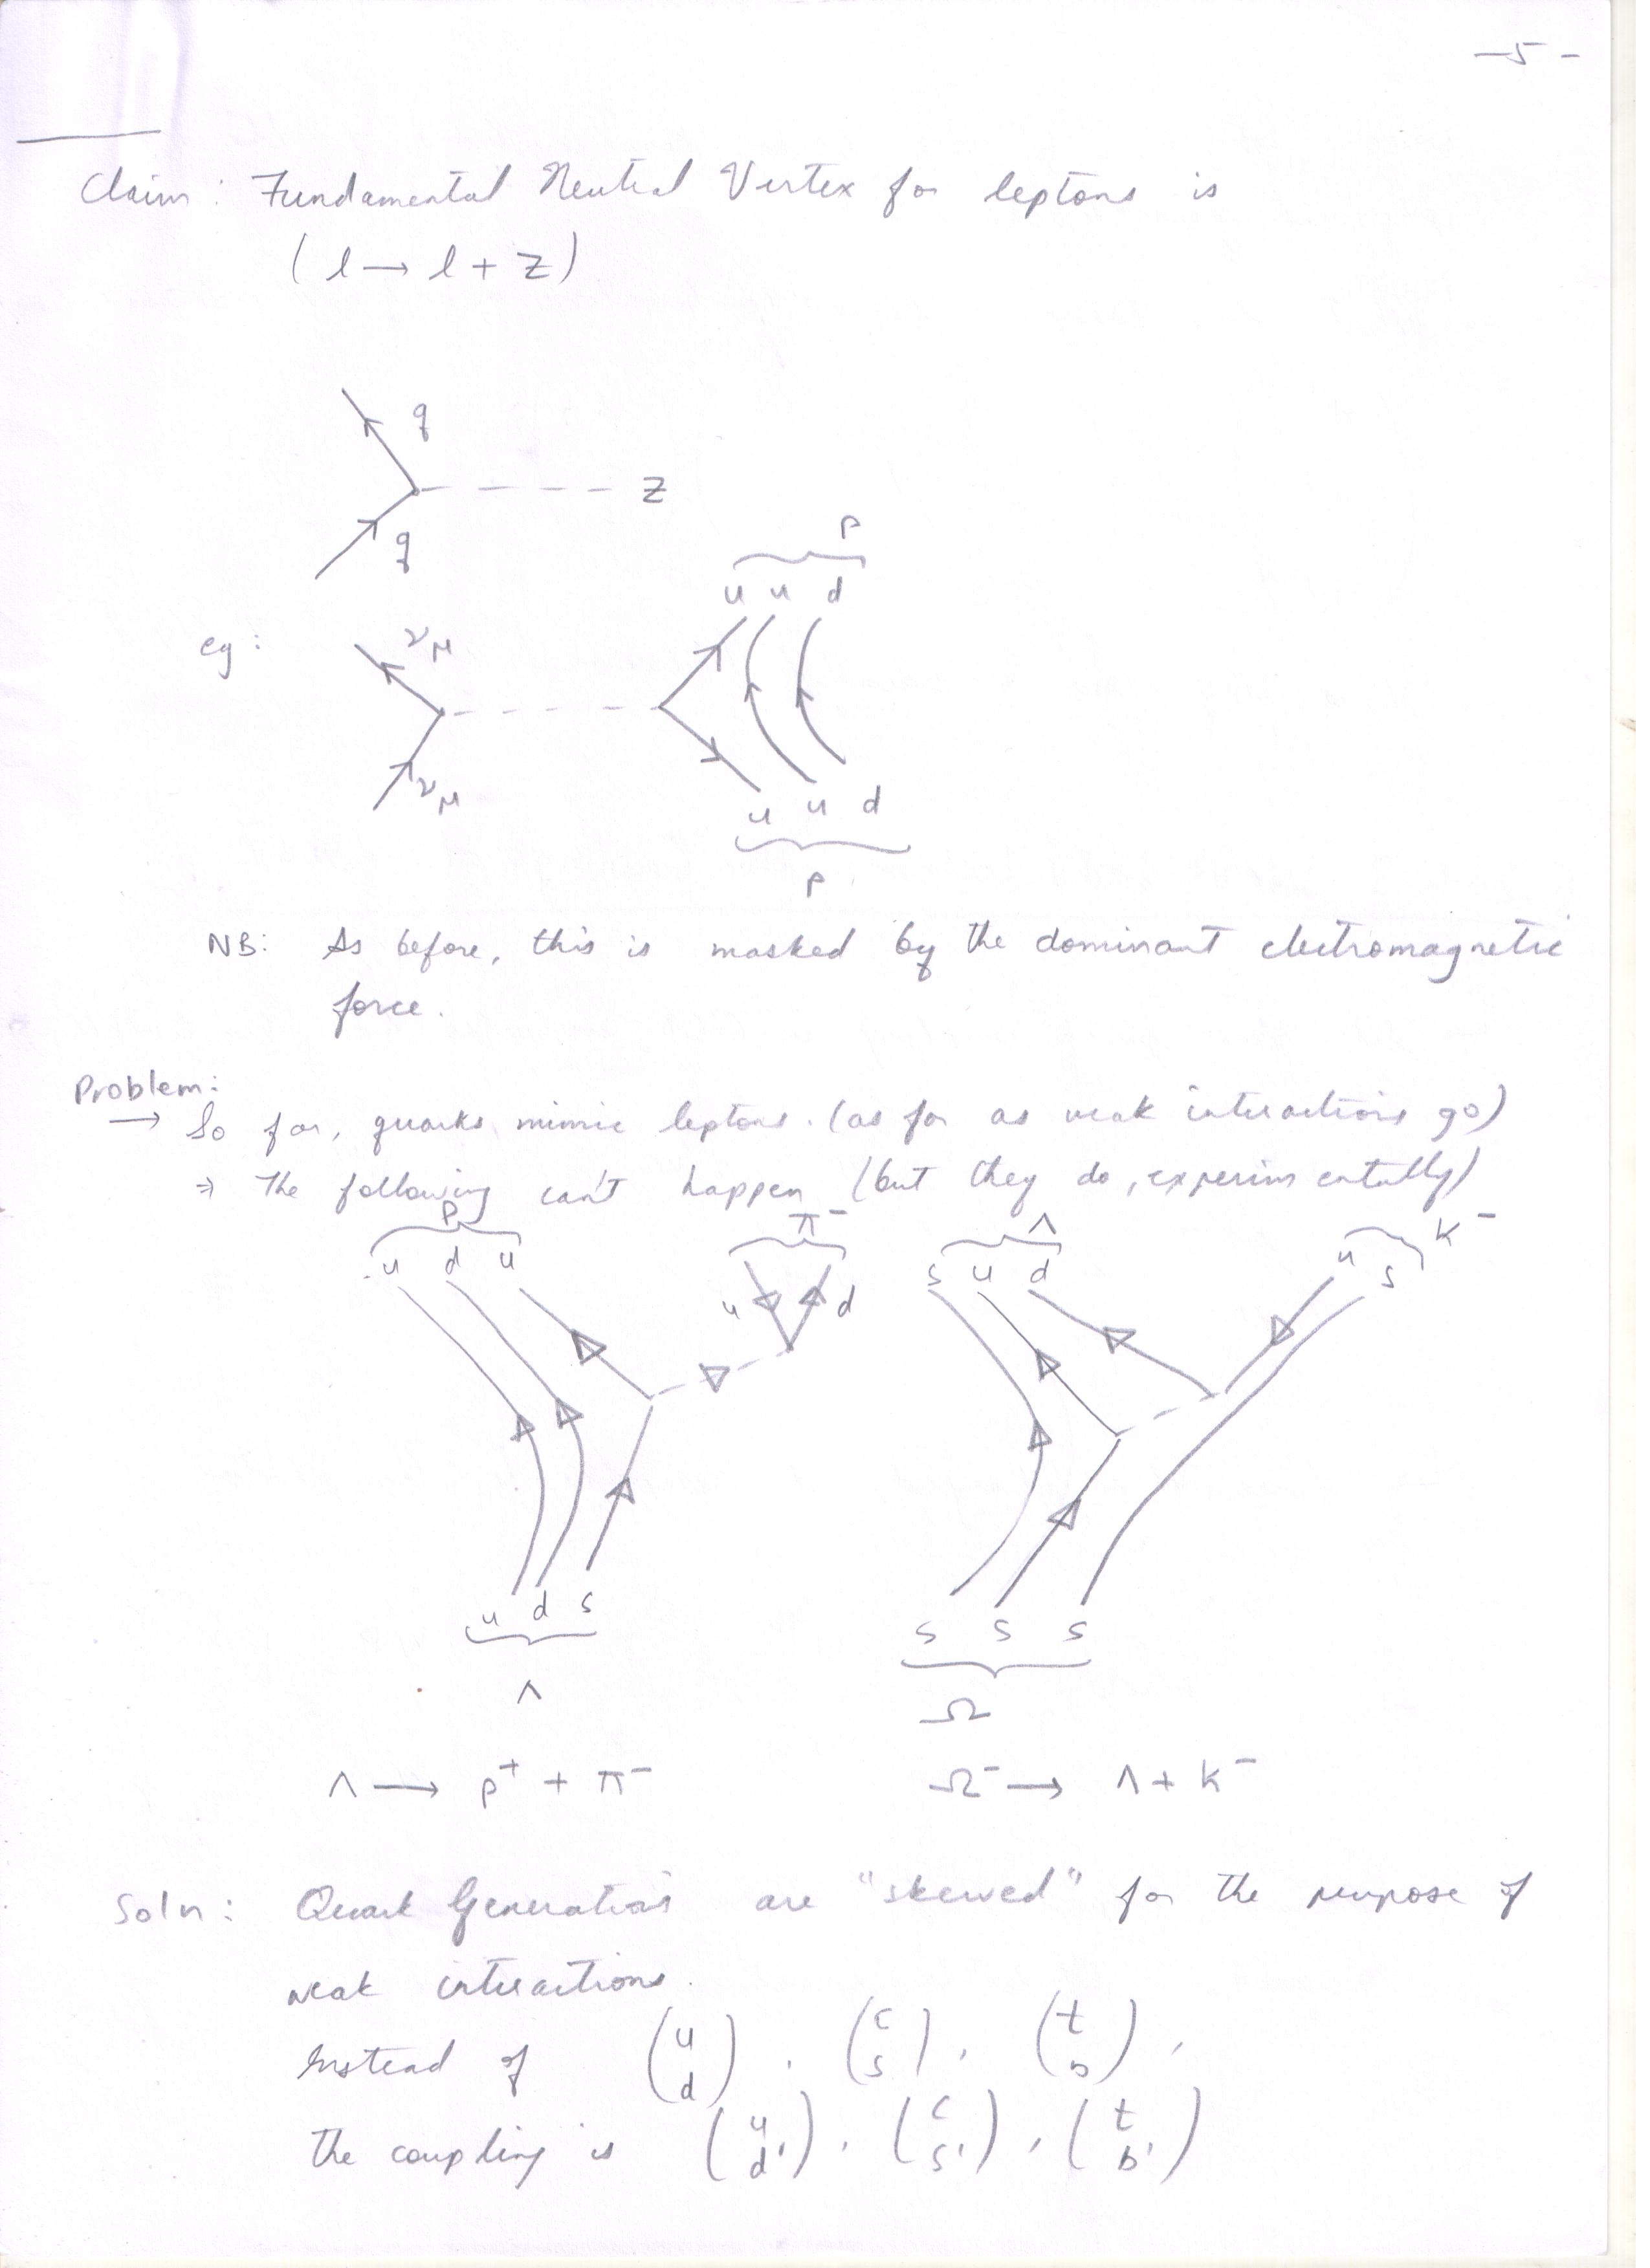 -5-
Claim: Fundamental Neutral Vertex for leptons is
(l → l + Z)
q
Z
q
p
u u d
eg:
νμ
νμ
u u d
p
NB: As before, this is masked by the dominant electromagnetic
force.
Problem:
→ So far, quarks mimic leptons. (as far as weak interactions go)
⇒ The following can't happen (but they do, experimentally)
p π⁻ Λ K⁻
u d u s u d u s
u d
u d s s s s
Λ Ω
Λ → p⁺ + π⁻ Ω⁻ → Λ + K⁻
Soln: Quark Generations are "skewed" for the purpose of
weak interactions.
Instead of (u d), (c s), (t b),
the coupling is (u d'), (c s'), (t b')